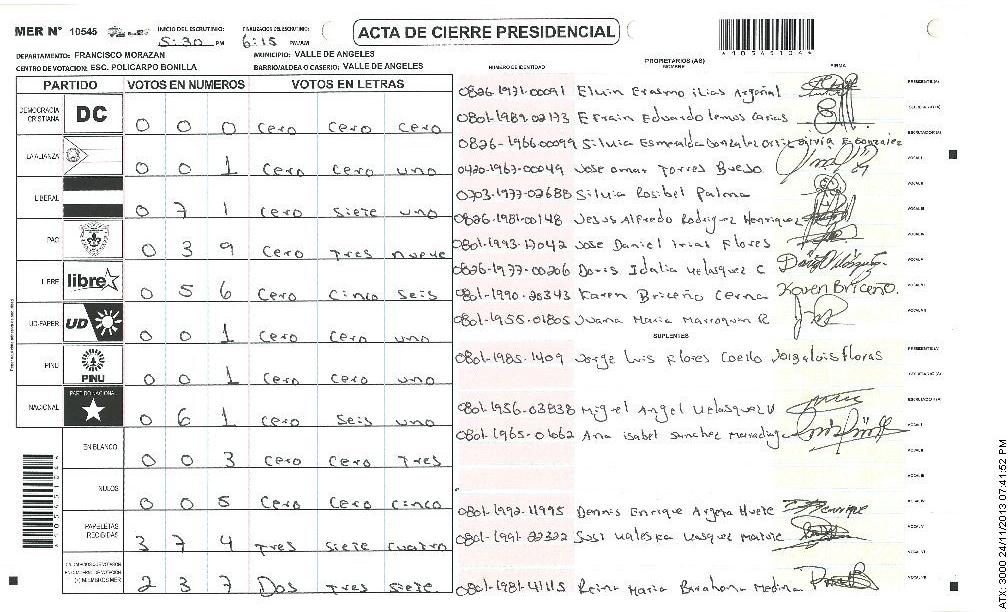 MER N° 10545 INICIO DEL ESCRUTINIO: 5:30 PM FINALIZACION DEL ESCRUTINIO: 6:15 PM/AM
ACTA DE CIERRE PRESIDENCIAL
DEPARTAMENTO: FRANCISCO MORAZAN MUNICIPIO: VALLE DE ANGELES
CENTRO DE VOTACION: ESC. POLICARPO BONILLA BARRIO/ALDEA O CASERIO: VALLE DE ANGELES
PARTIDO VOTOS EN NUMEROS VOTOS EN LETRAS
DEMOCRACIA CRISTIANA DC 0 0 0 Cero Cero Cero
LA ALIANZA 0 0 1 Cero Cero uno
LIBERAL 0 7 1 Cero Siete uno
PAC 0 3 9 Cero Tres nueve
LIBRE libre 0 5 6 Cero Cinco Seis
UD-FAPER UD 0 0 1 Cero Cero uno
PINU PINU 0 0 1 Cero Cero uno
NACIONAL PARTIDO NACIONAL 0 6 1 Cero Seis uno
EN BLANCO 0 0 3 Cero Cero Tres
NULOS 0 0 5 Cero Cero Cinco
PAPELETAS RECIBIDAS 3 7 4 Tres Siete Cuatro
2 3 7 Dos Tres Siete
NUMERO DE IDENTIDAD PROPIETARIOS (AS) NOMBRE FIRMA
0826-1971-00091 Elvin Erasmo ilias Argeñal
0801-1989-02193 Efrain Eduardo lemus Carias
0826-1966-00099 Silvia Esmeralda Gonzales Ortiz Silvia E Gonzalez
0420-1967-00049 Jose omar Torres Bueso
0703-1977-02688 Silvia Rosibel Palma
0826-1981-00148 Jesus Alfredo Rodriguez Henriquez
0801-1993-12042 Jose Daniel irias Flores
0826-1977-00206 Doris Idalia Velasquez C
0801-1990-20343 Karen Briceño Cerna Karen Briceño
0801-1955-01805 Juana Maria Marroquin R
SUPLENTES
0801-1985-1409 Jorge Luis Flores Coello
0801-1956-03838 Miguel Angel Velasquez V
0801-1965-01662 Ana isabel Sanchez
0801-1992-11995 Dennis Enrique
0801-1991-22322
0801-1981-41115 Reina Maria Barahona Medina
ATX 3000 24/11/2013 07:41:52 PM